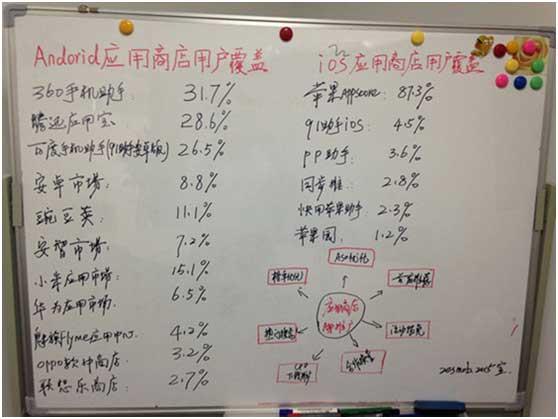 Andorid应用商店用户覆盖
360手机助手: 31.7%
腾迅应用宝 28.6%
百度手机助手(91助手安卓版) 26.5%
安卓市场: 8.8%
豌豆荚: 11.1%
安智市场: 7.2%
小米应用市场: 15.1%
华为应用市场: 6.5%
魅族Flyme应用中心: 4.2%
OPPO软件商店: 3.2%
联想乐商店: 2.7%
iOS应用商店用户覆盖
苹果Appscore: 87.3%
91助手iOS: 4.5%
PP助手: 3.6%
同步推: 2.8%
快用苹果助手: 2.3%
苹果园: 1.2%
ASO优化
首发推荐
应用商店